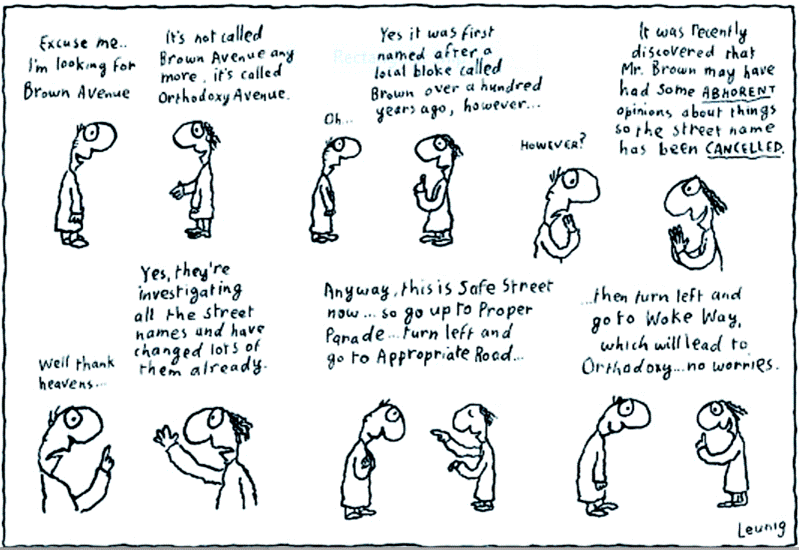 Excuse me..
I'm looking for
Brown Avenue
It's not called
Brown Avenue any
more, it's called
Orthodoxy Avenue.
Oh...
Yes it was first
named after a
local bloke called
Brown over a hundred
years ago, however...
HOWEVER?
It was recently
discovered that
Mr. Brown may have
had some ABHORENT
opinions about things
so the street name
has been CANCELLED.
Well thank
heavens...
Yes, they're
investigating
all the street
names and have
changed lots of
them already.
Anyway, this is Safe Street
now... so go up to Proper
Parade... turn left and
go to Appropriate Road...
...then turn left and
go to Woke Way,
which will lead to
Orthodoxy... no worries.
Leunig